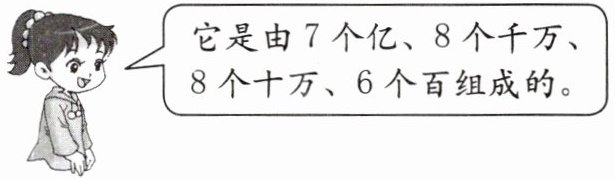 它是由7个亿、8个千万、
8个十万、6个百组成的。